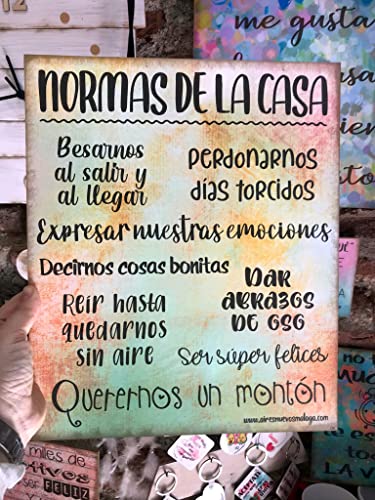 12
me gusta
NORMAS DE LA CASA
Besarnos
al salir y
al llegar
Perdonarnos
días torcidos
Expresar nuestras emociones
Decirnos cosas bonitas
Reír hasta
quedarnos
sin aire
DAR
ABRAZOS
DE OSO
Ser súper felices
Querernos un montón
www.airesnuevosmalaga.com
miles de
ser FELIZ